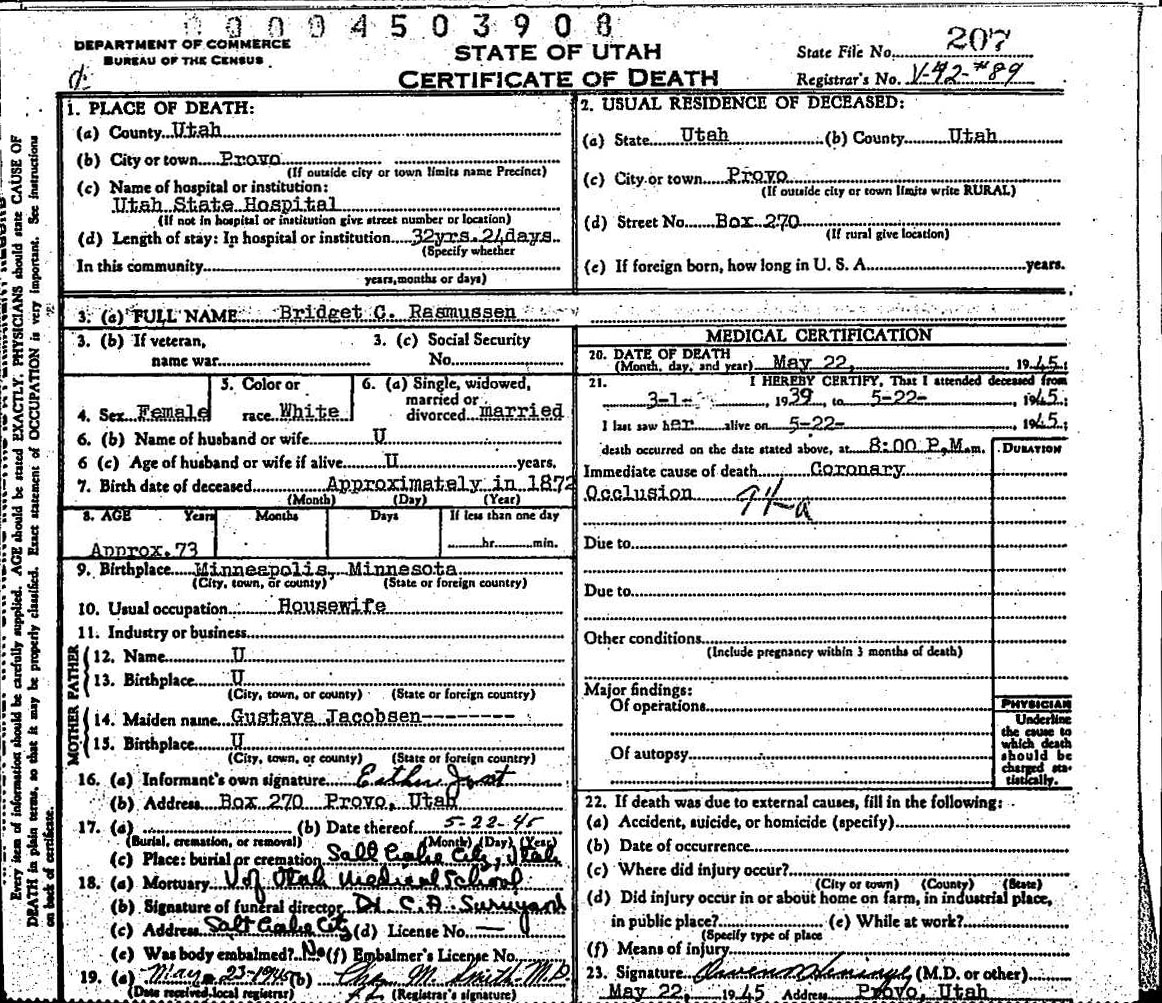 00004503908
DEPARTMENT OF COMMERCE
BUREAU OF THE CENSUS
STATE OF UTAH
CERTIFICATE OF DEATH
State File No. 207
Registrar's No. V-42-#89
1. PLACE OF DEATH:
(a) County Utah
(b) City or town Provo
(If outside city or town limits name Precinct)
(c) Name of hospital or institution:
Utah State Hospital
(If not in hospital or institution give street number or location)
(d) Length of stay: In hospital or institution 32yrs.24days
(Specify whether
In this community
years, months or days)
2. USUAL RESIDENCE OF DECEASED:
(a) State Utah (b) County Utah
(c) City or town Provo
(If outside city or town limits write RURAL)
(d) Street No. Box 270
(If rural give location)
(e) If foreign born, how long in U. S. A. years.
3. (a) FULL NAME Bridget C. Rasmussen
3. (b) If veteran, 3. (c) Social Security
name war No.
4. Sex Female
5. Color or
race White
6. (a) Single, widowed,
married or
divorced married
6. (b) Name of husband or wife U
6 (c) Age of husband or wife if alive U years.
7. Birth date of deceased Approximately in 1872
(Month) (Day) (Year)
8. AGE Years Months Days If less than one day
Approx. 73 hr. min.
9. Birthplace Minneapolis, Minnesota
(City, town, or county) (State or foreign country)
10. Usual occupation Housewife
11. Industry or business
FATHER
12. Name U
13. Birthplace U
(City, town, or county) (State or foreign country)
MOTHER
14. Maiden name Gustava Jacobsen---------
15. Birthplace U
(City, town, or county) (State or foreign country)
16. (a) Informant's own signature Esther Jost
(b) Address Box 270 Provo, Utah
17. (a) (b) Date thereof 5-22-45
(Burial, cremation, or removal) (Month) (Day) (Year)
(c) Place: burial or cremation Salt Lake City, Utah
18. (a) Mortuary U of Utah Medical School
(b) Signature of funeral director Dr. C. A.
(c) Address Salt Lake City (d) License No. —
(e) Was body embalmed? No (f) Embalmer's License No.
19. (a) May 23-1945 (b) Chas M. Smith M.D.
(Date received local registrar) (Registrar's signature)
MEDICAL CERTIFICATION
20. DATE OF DEATH
(Month, day, and year) May 22, 1945;
21. I HEREBY CERTIFY, That I attended deceased from
3-1- , 1939, to 5-22- , 1945
I last saw her alive on 5-22- , 1945;
death occurred on the date stated above, at 8:00 P.M. m.
DURATION
Immediate cause of death Coronary
Occlusion 94-a
Due to
Due to
Other conditions
(Include pregnancy within 3 months of death)
Major findings:
Of operations
Of autopsy
PHYSICIAN
Underline
the cause to
which death
should be
charged sta-
tistically.
22. If death was due to external causes, fill in the following:
(a) Accident, suicide, or homicide (specify)
(b) Date of occurrence
(c) Where did injury occur?
(City or town) (County) (State)
(d) Did injury occur in or about home on farm, in industrial place,
in public place? (e) While at work?
(Specify type of place
(f) Means of injury
23. Signature (M.D. or other)
May 22, 1945 Address Provo, Utah
Every item of information should be carefully supplied. AGE should be stated EXACTLY. PHYSICIANS should state CAUSE OF
DEATH in plain terms, so that it may be properly classified. Exact statement of OCCUPATION is very important. See instructions
on back of certificate.